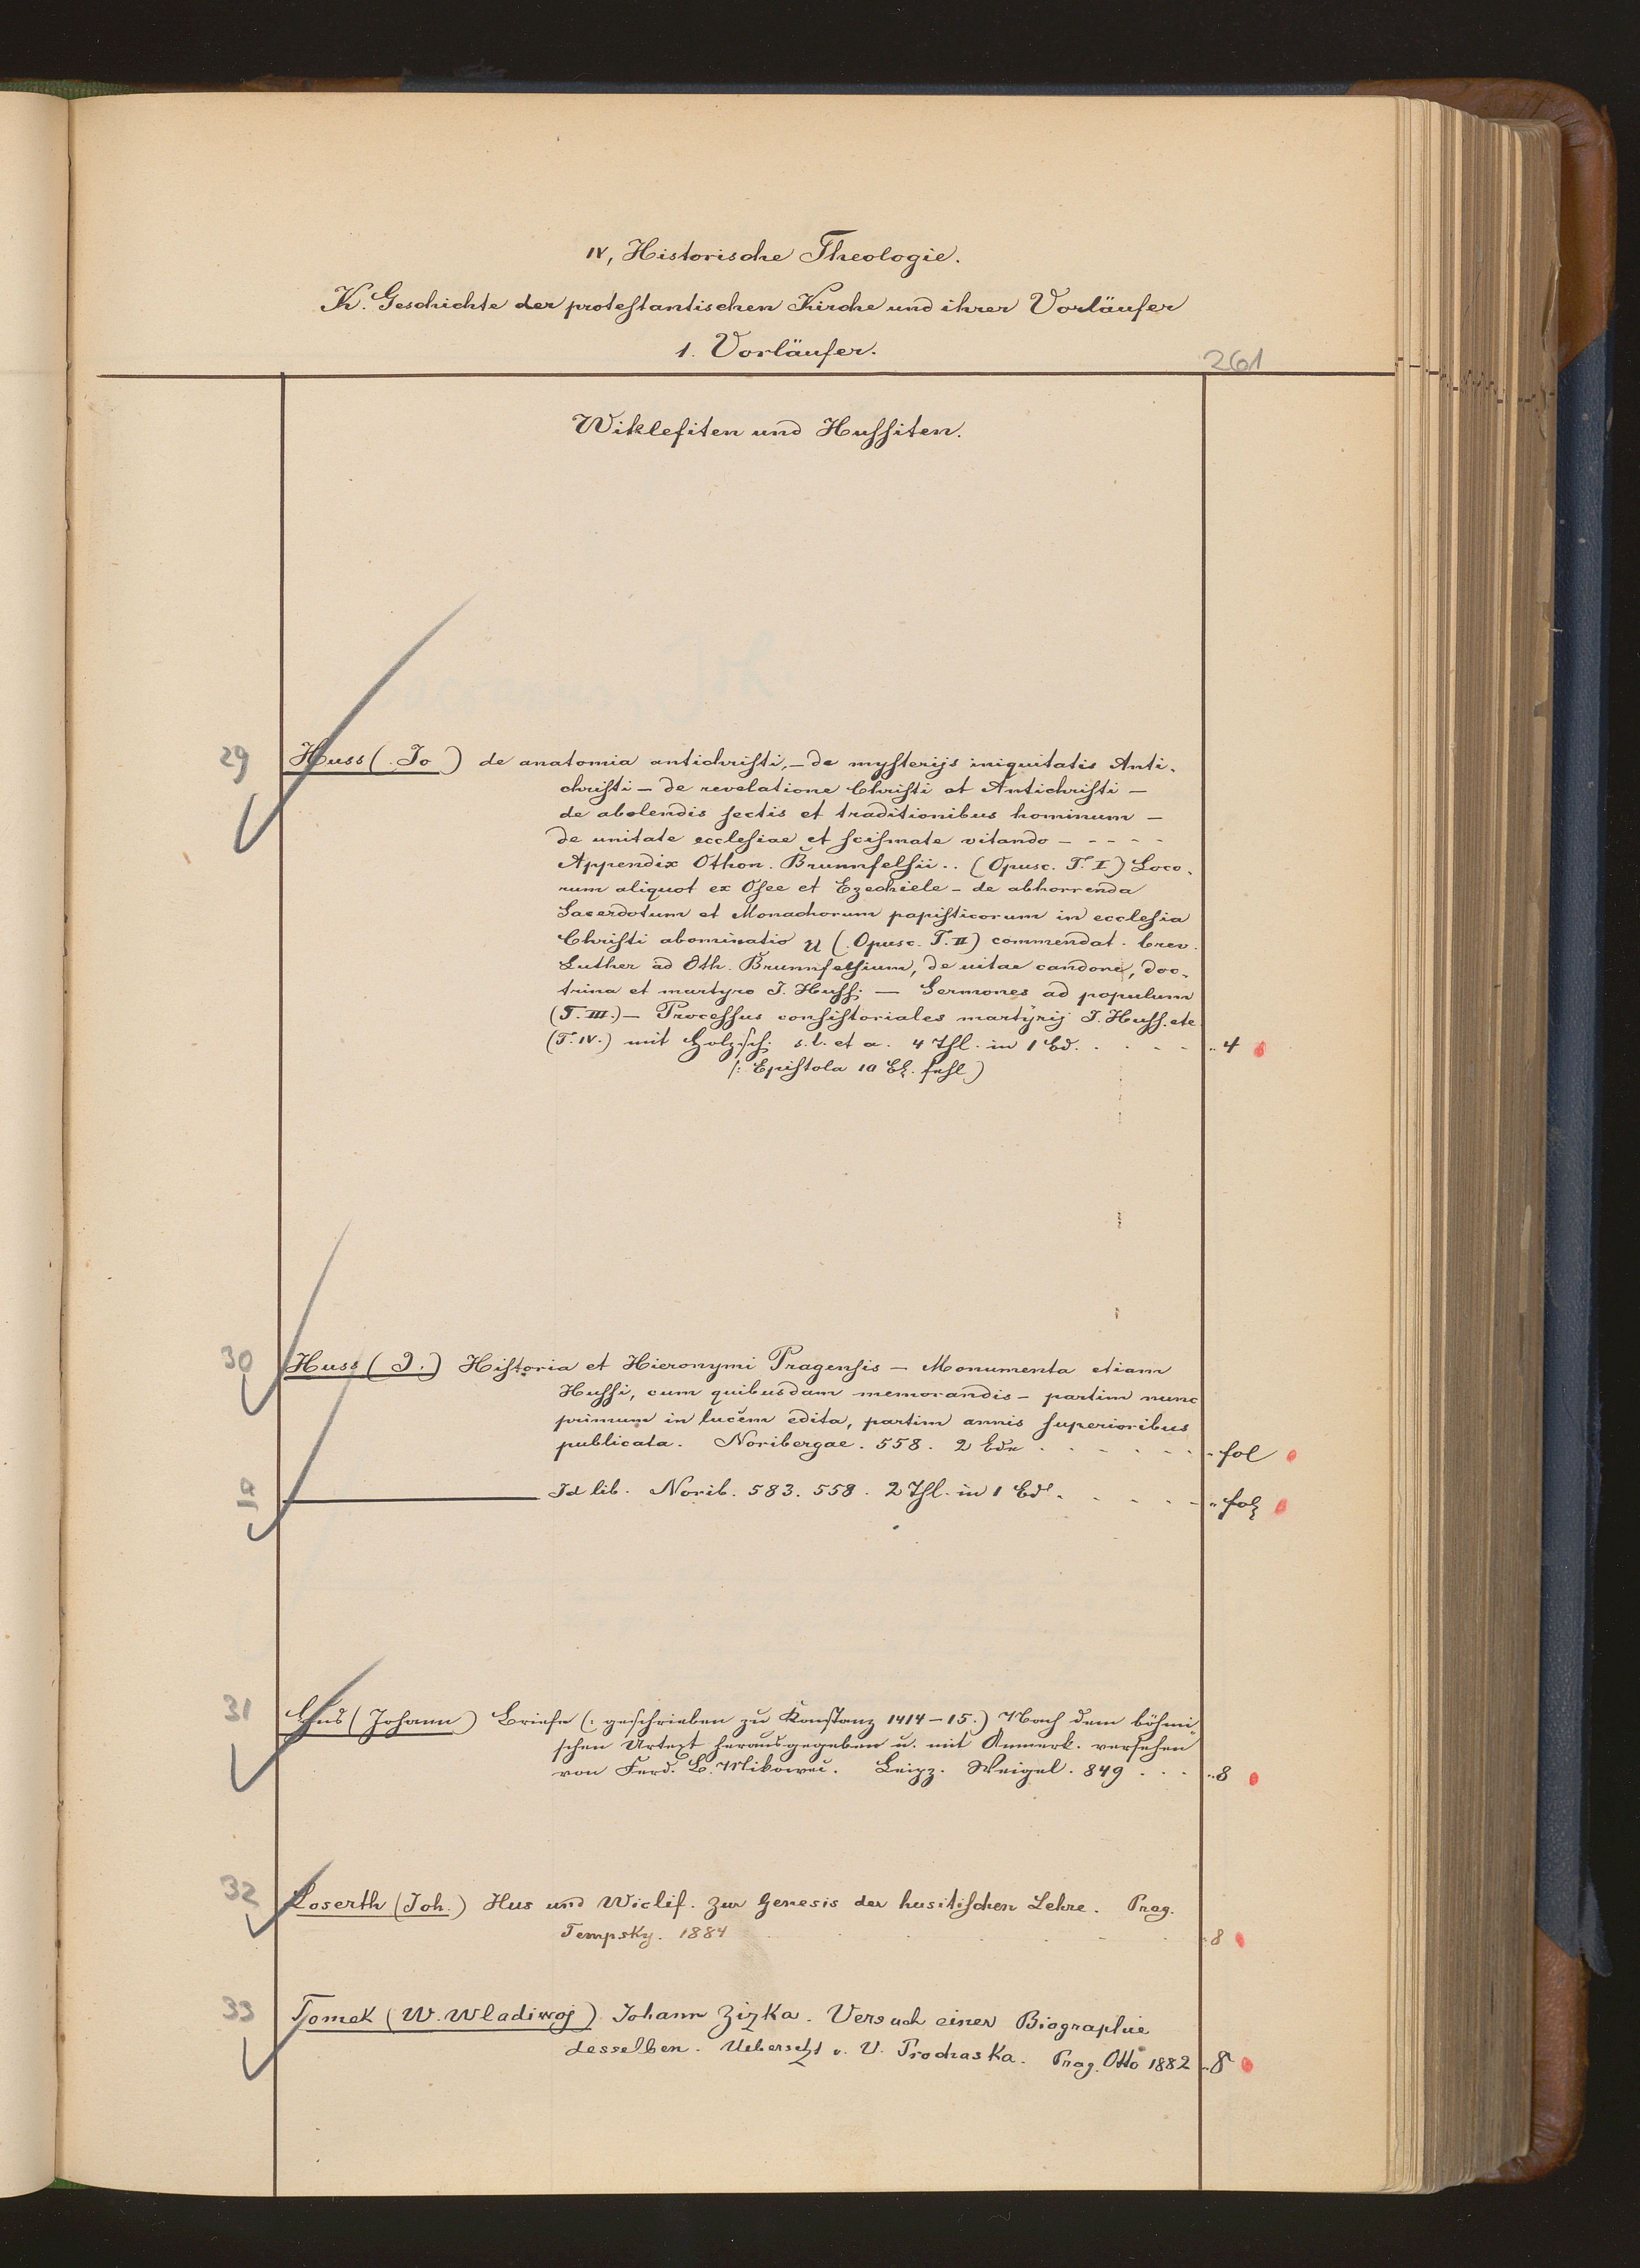 IV, Historische Theologie.
K. Geschichte der protestantischen Kirche und ihrer Vorläufer
1. Vorläufer.
261
Wiklefiten und Hussiten.
29
Huss (Jo) de anatomia antichristi, – de mysterijs iniquitatis Anti-
christi – de revelatione Christi et Antichristi –
de abolendis sectis et traditionibus hominum –
de unitate ecclesiae et scismate vitando – - - - -
Appendix Othon. Brunnfelsii .. (Opusc. T. I) Loco-
rum aliquot ex Osee et Ezechiele – de abhorrenda
Sacerdotum et Monachorum papisticorum in ecclesia
Christi abominatio (Opusc. T. II) commendat. brev.
Luther ad Oth. Brunnfelsium, de vitae candore, doc-
trina et martyro J. Huss; — Sermones ad populum
(T. III.) – Processus consistoriales martyrij J. Huss. etc.
(T. IV.) mit Holzsch. s. l. et a. 4 Thl. in 1 Bd. . . - - - .. 4
(: Epistola 10 Bl. fehl.)
30
Huss (J.) Historia et Hieronymi Pragensis – Monumenta etiam
Hussi, cum quibusdam memorandis – partim nunc
primum in lucem edita, partim annis superioribus
publicata. Noribergae. 558. 2 Bde . . - - - - .. fol
a
Id lib. Norib. 583. 558. 2 Thl. in 1 Bd. . . . . - .. fol
31
Hus (Johann) Briefe (: geschrieben zu Konstanz 1414–15.) Nach dem böhmi-
schen Urtext herausgegeben u. mit Anmerk. versehen
von Ferd. B. Mikowec. Leipz. Weigel. 849 . . . .. 8
32
Loserth (Joh.) Hus und Wiclif. Zur Genesis der husitischen Lehre. Prag.
Tempsky. 1884 . . . . . 8
33
Tomek (W. Wladiwoj) Johann Zizka. Versuch einer Biographie
desselben. Uebersetzt v. V. Prochaska. Prag. Otto 1882 .. 8